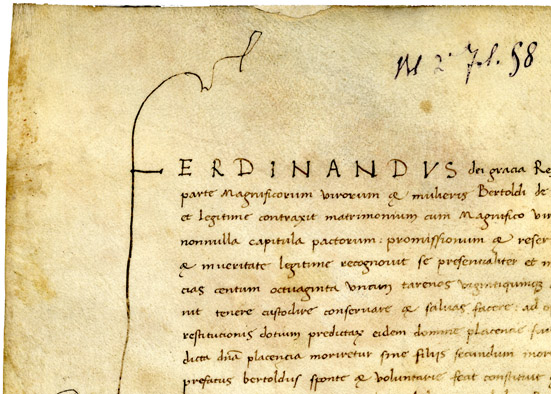 FERDINANDVS dei gracia Re
parte Magnificorum virorum & mulieris Bertoldi de
et legitime contraxit matrimonium cum Magnifico vir
nonnulla capitula pactorum: promissionum & reser
& in veritate legitime recognovit se presentialiter et
cias centum octuaginta unam tarenos vigintiquinque
nit tenere custodire conservare & salvas facere: ad
restitutionis dotium predictar eidem domine placencie
dicta dña placencia moriretur sine filijs secundum mor
prefatus bertoldus sponte & voluntarie feat constituit